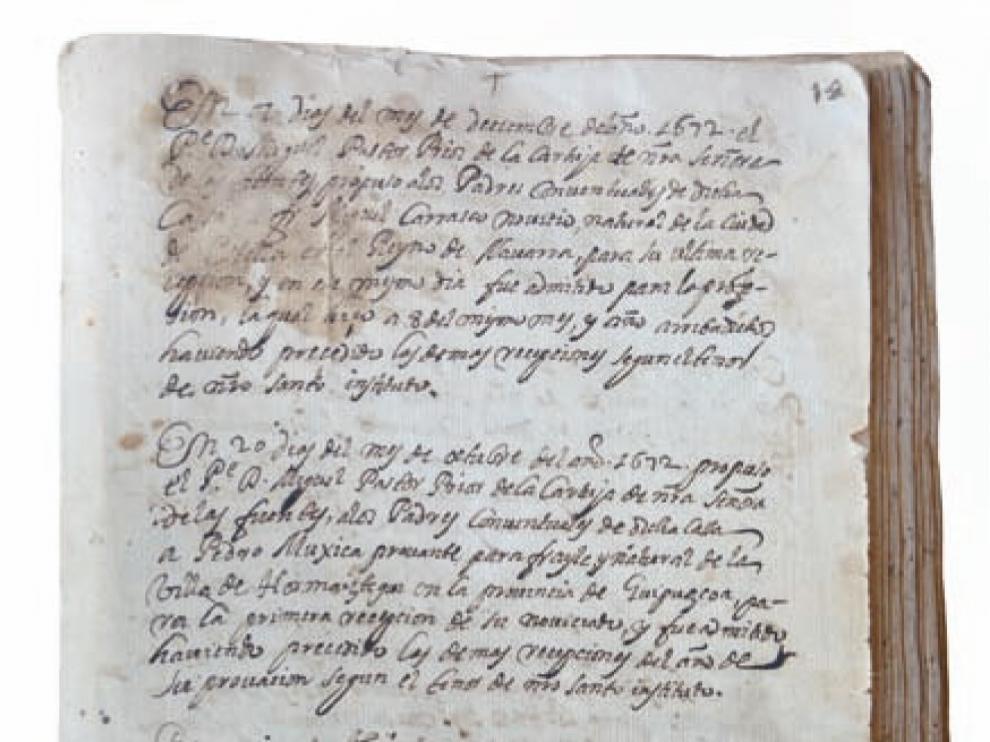 18
En 7 dias del mes de deciembre del año 1672 el
Pe D Miguel Pastor Prior de la Cartuja de nra Señora
de las fuentes, propuso a los Padres Conventuales de dicha
Casa Miguel Carrasco novicio, natural de la Ciudad
de en el Reyno de Navarra, para su ultima re-
cepcion, y en ese mysmo dia fue admitido para la profe-
sion, la qual hiço a 8 del mysmo mes, y año arriba dicho
haviendo precedido las demas recepciones segun el tenor
de nro santo instituto.
En 20 dias del mes de octubre del año 1672 propuso
el Pe D. Miguel Pastor Prior de la Cartuja de nra Señora
de las fuentes, a los Padres Conventuales de dicha Casa
a Pedro Muxica provante para frayle y natural de la
villa de Hormaiztegui en la provincia de Guipuzcoa, pa-
ra la primera recepcion de su noviciado, y fue admitido
haviendo precedido las demas recepciones del año de
su provacion segun el tenor de nro santo instituto.